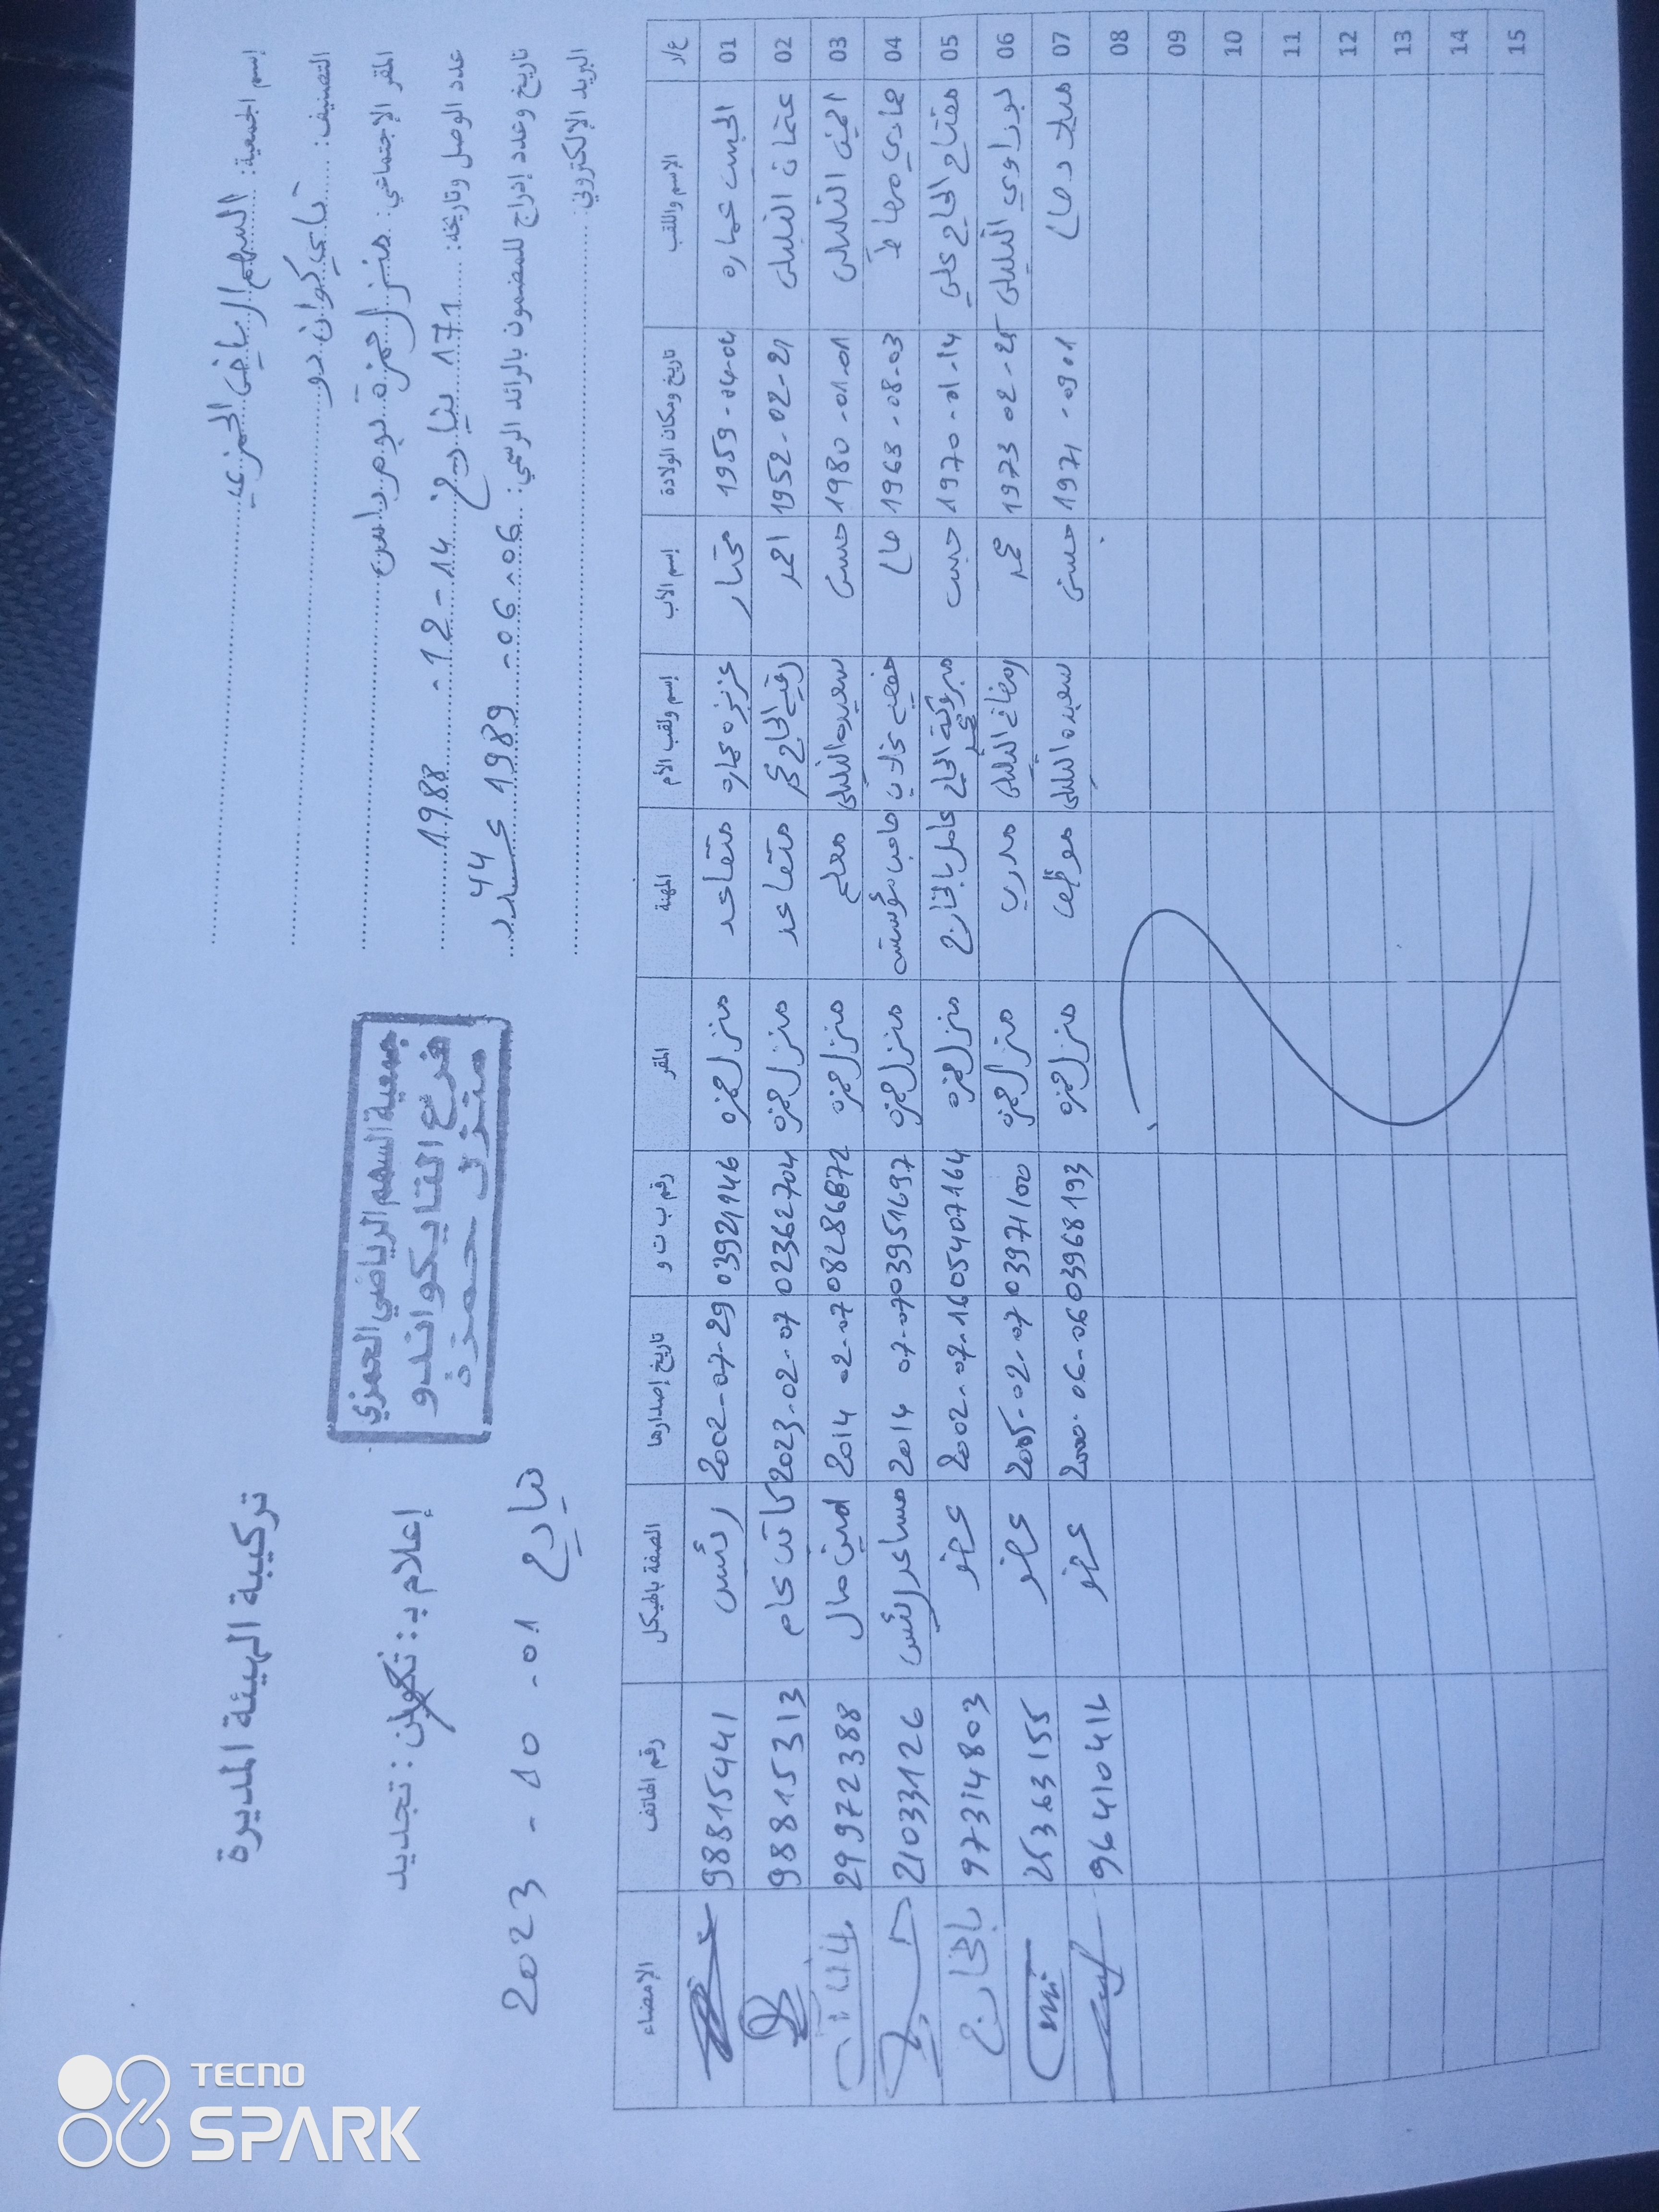 تركيبة الهيئة المديرة
إعلام بـ: تكوين : تجديد
بتاريخ 01 - 10 - 2023
جمعية السهم الرياضي الحمزي
فرع التايكواندو
منزل حمزة
إسم الجمعية: السهم الرياضي الحمزي
التصنيف: تايكواندو
المقر الإجتماعي: منزل حمزة بومرداس
عدد الوصل وتاريخه: 171 بتاريخ 14 - 12 - 1988
تاريخ وعدد إدراج للمضمون بالرائد الرسمي: 06 - 06 - 1989 عدد 44
البريد الإلكتروني:
ع/ر الإسم واللقب تاريخ ومكان الولادة إسم الأب إسم ولقب الأم المهنة المقر رقم ب ت و تاريخ إصدارها الصفة بالهيكل رقم الهاتف الإمضاء
01 عماره 1959-04-04 مختار عزيزه عماره متقاعد منزل حمزه 03921146 2002-07-29 رئيس 98815441
02 عثمان التليلي 1952-02-21 احمد رقيه الحاج متقاعد منزل حمزه 02362704 2023-02-07 كاتب عام 98815313
03 التليلي 1980-01-01 حسن سعيده التليلي معلم منزل حمزه 2014-02-07 امين مال 29972388
04 1963-08-03 صاحب مؤسسة منزل حمزه 03951697 2014 07-07 مساعد الرئيس 21033126
05 مفتاح الحاج علي 1970-01-14 حبيب مبروكة الحاج عامل بالخارج منزل حمزه 05407164 2002-07-16 عضو 97314803 بالخارج
06 بوراوي التليلي 1973 02-25 محمد التليلي مدرب منزل حمزه 03971100 2005-02-07 عضو 25363155
07 1971-09 01 حسن سعيده التليلي موظف منزل حمزه 03968193 2000-06-06 عضو 96410414
08
09
10
11
12
13
14
15
TECNO
SPARK